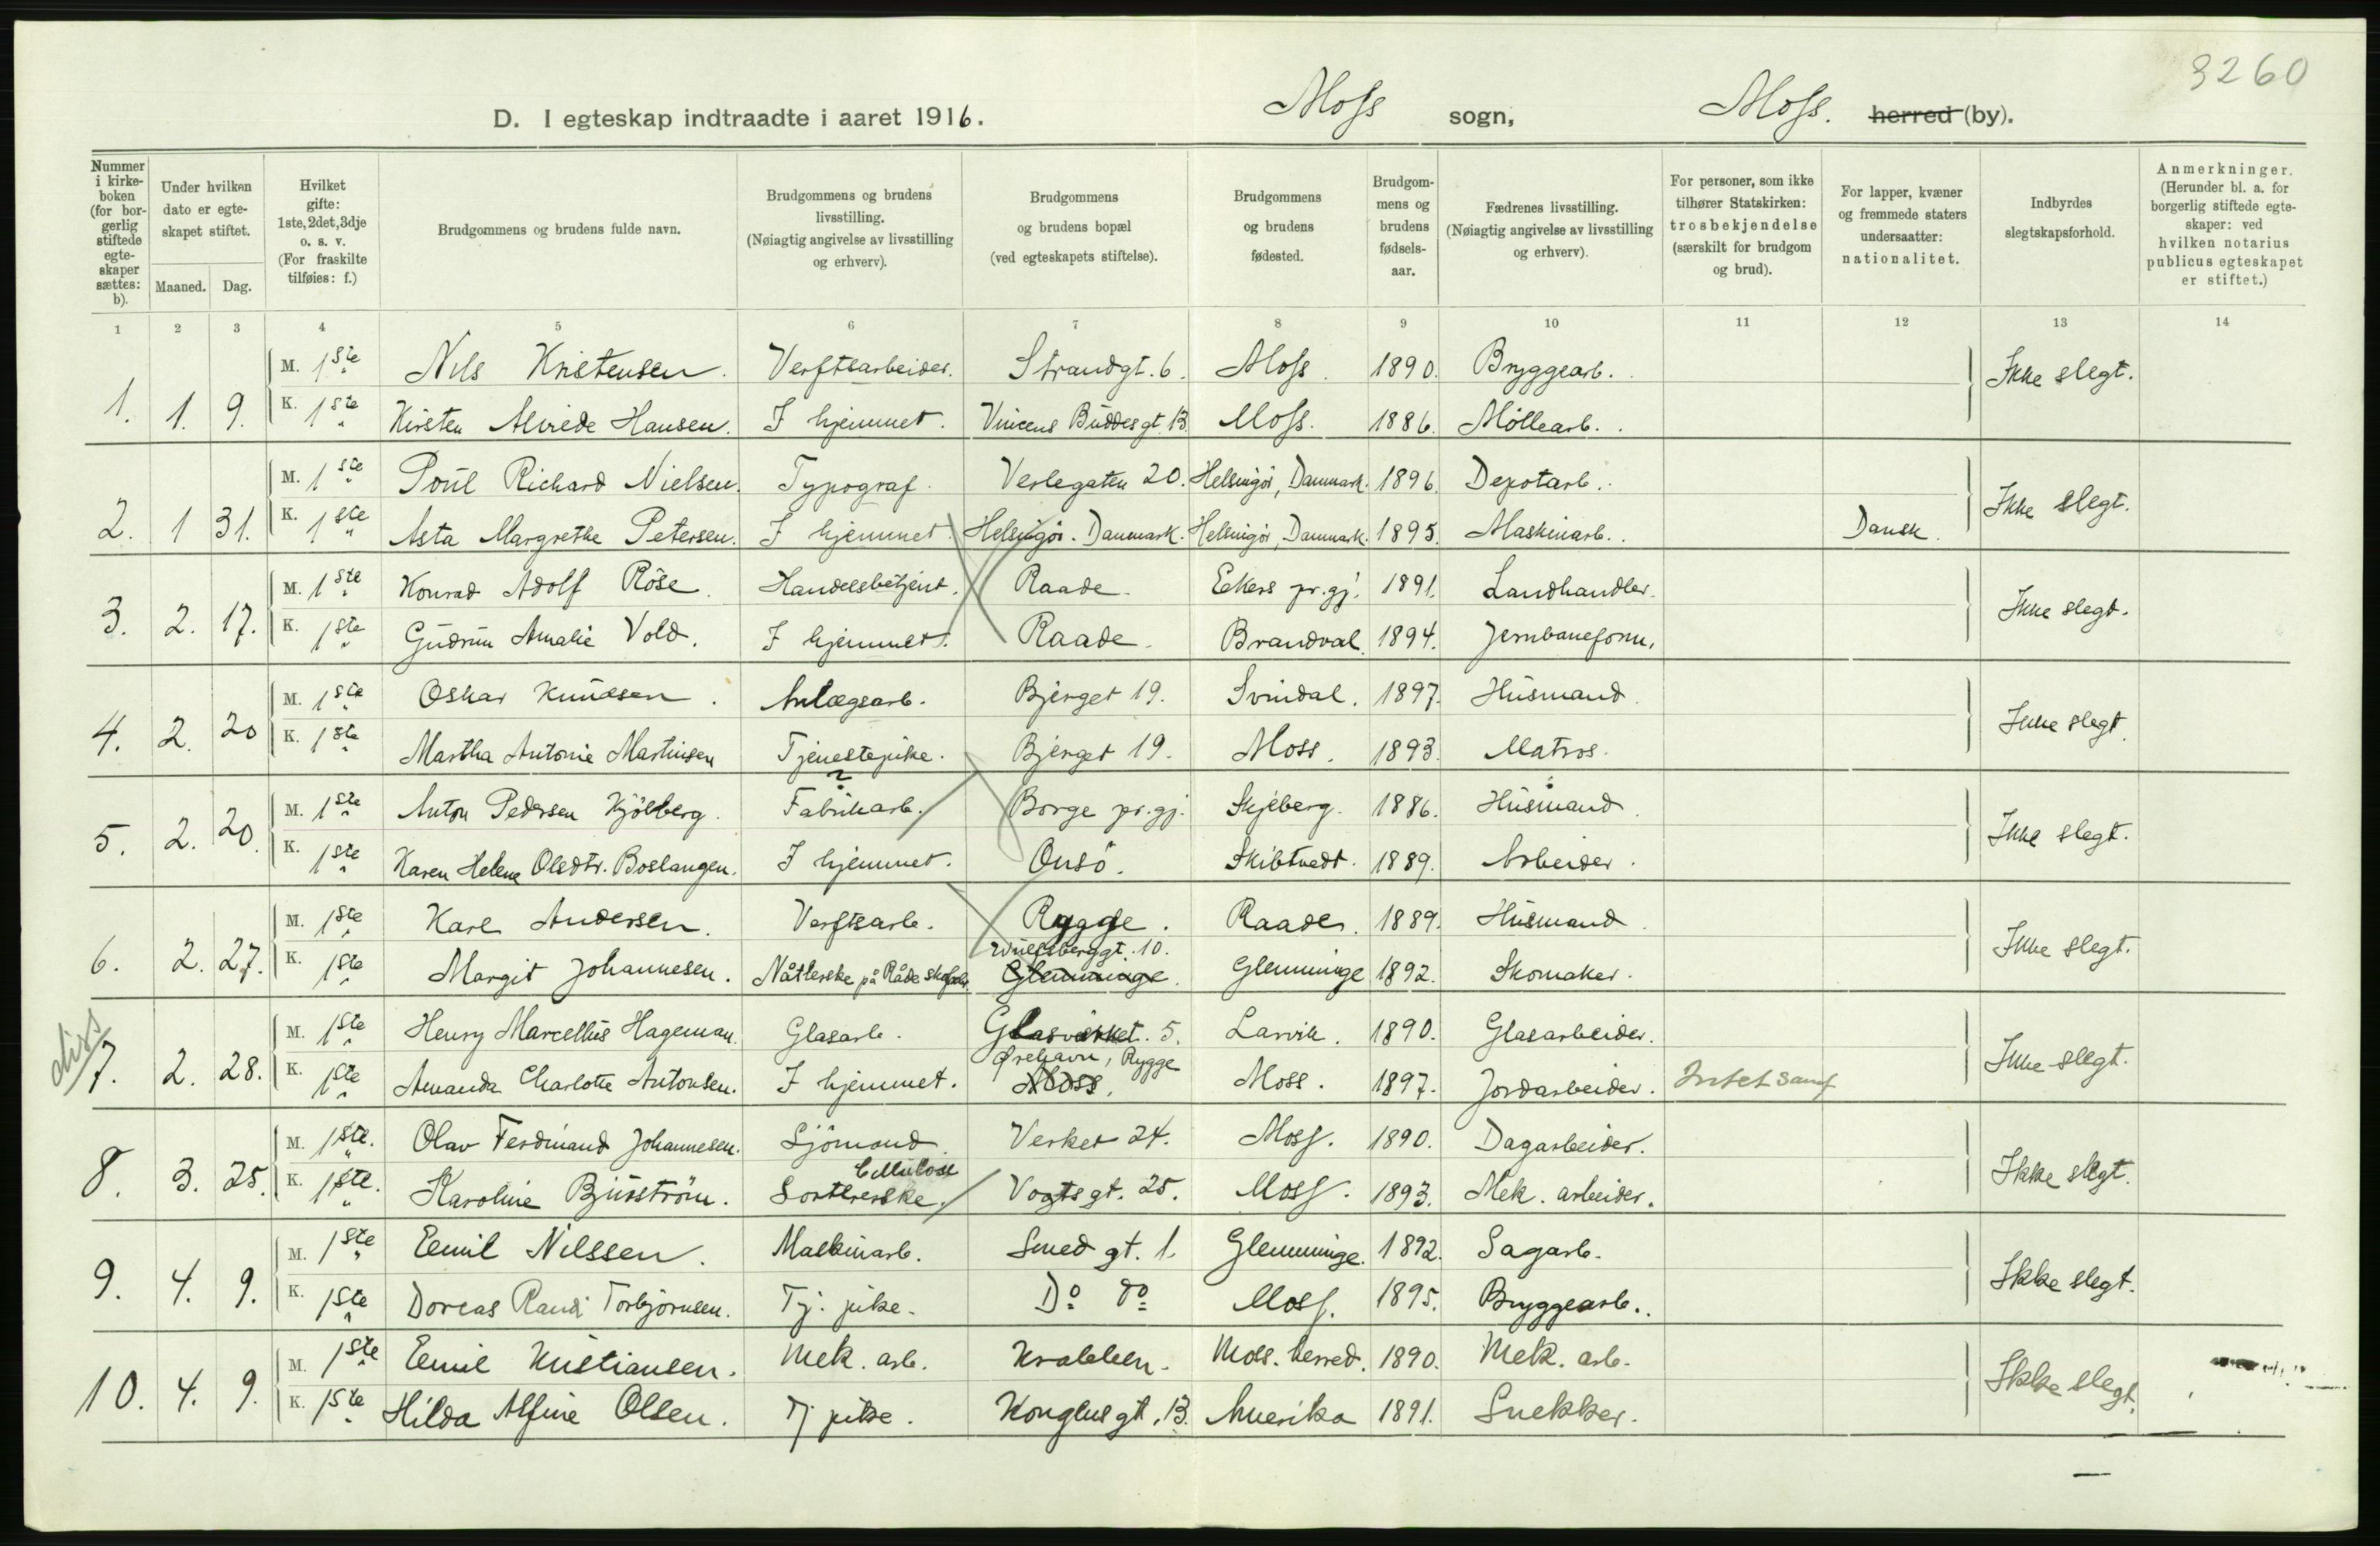 3260
D. I egteskap indtraadte i aaret 1916. Moss sogn, Moss. herred (by).
Nummer i kirkeboken (for borgerlig stiftede egteskaper sættes: b).
Under hvilken dato er egteskapet stiftet.
Maaned. Dag.
Hvilket gifte: 1ste, 2det, 3dje o. s. v. (For fraskilte tilføies: f.)
Brudgommens og brudens fulde navn.
Brudgommens og brudens livsstilling. (Nøiagtig angivelse av livsstilling og erhverv).
Brudgommens og brudens bopæl (ved egteskapets stiftelse).
Brudgommens og brudens fødested.
Brudgommens og brudens fødselsaar.
Fædrenes livsstilling. (Nøiagtig angivelse av livsstilling og erhverv).
For personer, som ikke tilhører Statskirken: trosbekjendelse (særskilt for brudgom og brud).
For lapper, kvæner og fremmede staters undersaatter: nationalitet.
Indbyrdes slegtskapsforhold.
Anmerkninger. (Herunder bl. a. for borgerlig stiftede egteskaper: ved hvilken notarius publicus egteskapet er stiftet.)
1 2 3 4 5 6 7 8 9 10 11 12 13 14
M. 1ste Nils Kristensen. Verftsarbeider. Strandgt. 6. Moss. 1890. Bryggearb. Ikke slegt.
1. 1. 9. K. 1ste Kirsten Alvide Hansen. I hjemmet. Vincens Buddesgt. 13. Moss. 1886. Möllearb.
M. 1ste Poul Richard Nielsen. Typograf. Verlegaten 20. Helsingör, Danmark. 1896. Depotarb. Ikke slegt.
2. 1 31. K. 1ste Asta Margrethe Petersen. I hjemmet. Helsingör. Danmark. Helsingör, Danmark. 1895. Maskinarb. Dansk.
M. 1ste Konrad Adolf Röse. Handelsbetjent. Raade. Eekers pr.gj. 1891. Landhandler. Ikke slegt.
3. 2. 17. K. 1ste Gudrun Amalie Vold. I hjemmet. Raade. Brandval. 1894. Jernbaneform.
M. 1ste Oskar Knudsen. Anlægsarb. Bjerget 19. Svindal. 1897. Husmand. Ikke slegt.
4. 2. 20 K. 1ste Martha Antonie Martinsen Tjenestepike. Bjerget 19. Moss. 1893. Matros.
M. 1ste Anton Pedersen Kjölberg. Fabrikarb. Borge pr.gj. Skjeberg. 1886. Husmand. Ikke slegt.
5. 2. 20. K. 1ste Karen Helene Olsdtr. Boslangen. I hjemmet. Onsö. Skibtvedt. 1889. Arbeider.
M. 1ste Karl Andersen. Verftsarb. Rygge. Raade. 1889. Husmand. Ikke slegt.
Wulfsberggt. 10.
6. 2. 27. K. 1ste Margit Johannesen. Nåtlerske på Råde skofabr. Glemminge. Glemminge 1892. Skomaker.
diss
M. 1ste Henry Marcellius Hageman. Glasarb. Glasværket. 5. Larvik. 1890. Glasarbeider. Ikke slegt.
Ørehavn, Rygge
7. 2. 28. K. 1ste Amanda Charlotte Antonsen. I hjemmet. Moss. Moss. 1897. Jordarbeider. Intet samf
M. 1ste. Olav Ferdinand Johannesen. Sjömand. Verket 24. Moss. 1890. Dagarbeider. Ikke slegt.
Cellulose
8. 3. 25. K. 1ste. Karoline Bjurström. Sorterske. Vogtsgt. 25. Moss. 1893. Mek. arbeider.
M. 1ste Emil Nilssen. Maskinarb. Smed gt. 1. Glemminge. 1892. Sagarb. Ikke slegt.
9. 4. 9. K. 1ste Dorcas Randi Torbjörnsen. Tj. pike. Do do Moss. 1895. Bryggearb.
M. 1ste Emil Kristiansen. Mek. arb. Krabben. Moss. herred. 1890. Mek. arb. Ikke slegt.
10. 4. 9. K. 1ste Hilda Alfine Olsen. Tj pike. Konglusgt. 13. Amerika 1891. Snekker.